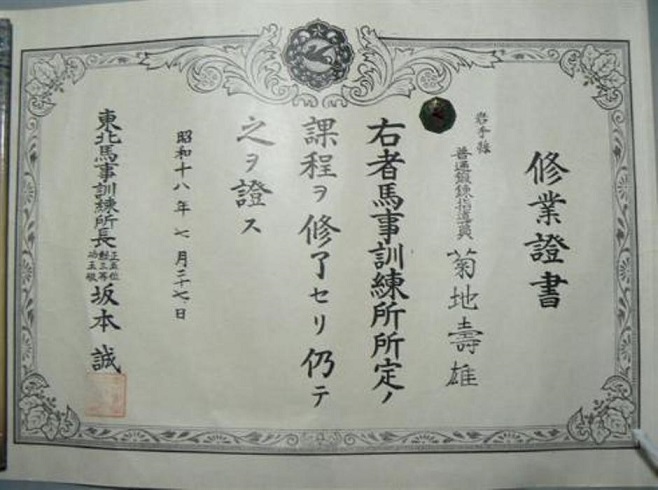 修業證書
岩手縣
普通鍛錬指導員
菊地壽雄
右者馬事訓練所所定ノ
課程ヲ修了セリ仍テ
之ヲ證ス
昭和十八年七月二十七日
東北馬事訓練所長
正五位
勲三等
功五級
坂本誠